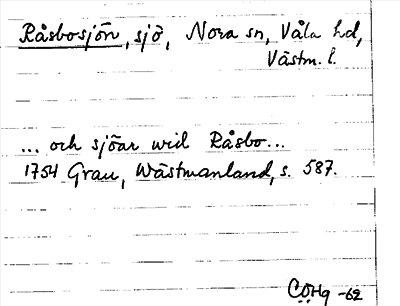 Råsbosjön, sjö, Nora sn, Våla hd,
Västm. l.
... och sjöar wid Råsbo...
1754 Grau, Wästmanland, s. 587.
COHg -62